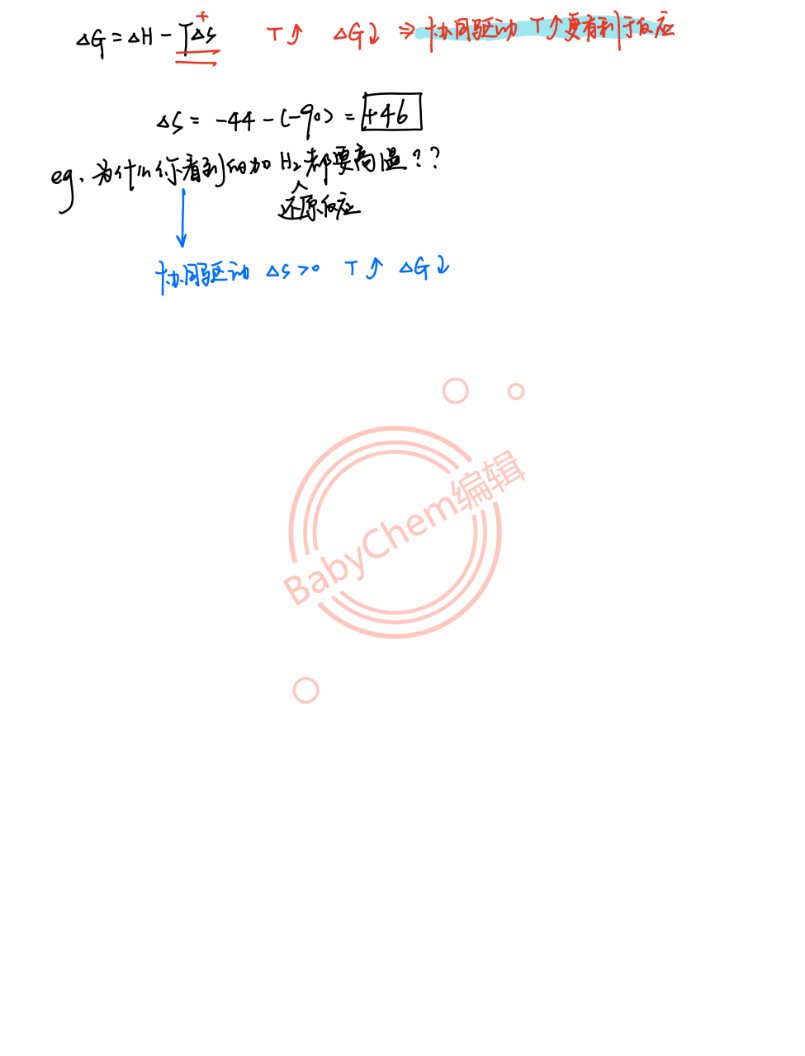 ΔG = ΔH - TΔS + T↑ ΔG↓ ⇒ 协同驱动 T↑更有利于反应
ΔS = -44 - (-90) = +46
eg. 为什么你看到的加 H₂ 都要高温??
还原反应
协同驱动 ΔS>0 T↑ ΔG↓
BabyChem编辑